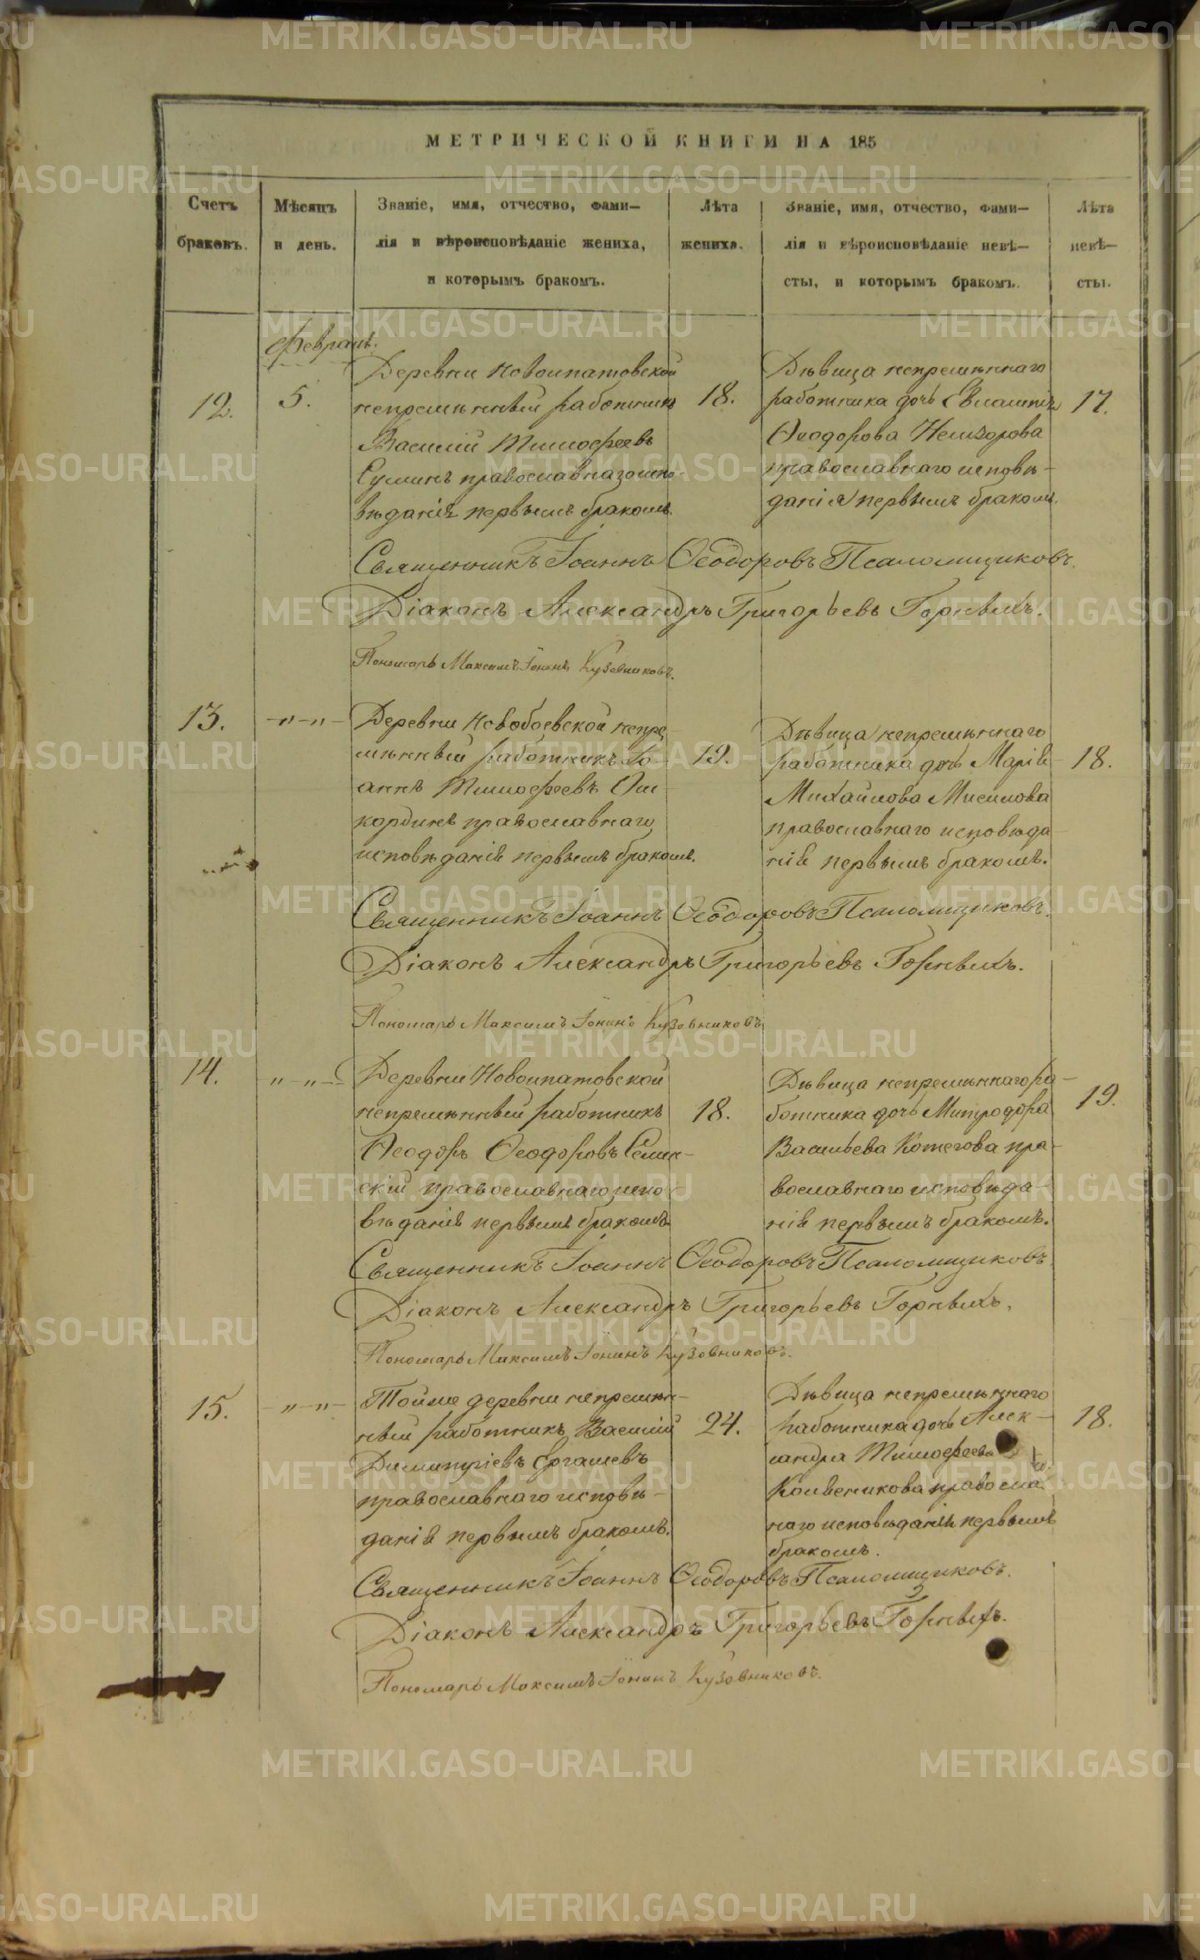 МЕТРИЧЕСКОЙ КНИГИ НА 185
Счетъ браковъ.
Мѣсяцъ и день.
Званіе, имя, отчество, фами-
лія и вѣроисповѣданіе жениха,
и которымъ бракомъ.
Лѣта жениха.
Званіе, имя, отчество, фами-
лія и вѣроисповѣданіе невѣ-
сты, и которымъ бракомъ.
Лѣта невѣ-
сты.
Февраль.
12.
5.
Деревни Новоипатовской
непремѣнный работникъ
Василій Тимофеевъ
православнаго испо-
вѣданія первымъ бракомъ.
18.
Дѣвица непремѣннаго
работника дочь Евлампія
Ѳеодорова
православнаго исповѣ-
данія первымъ бракомъ.
17.
Священникъ Іоаннъ Ѳеодоровъ Псаломщиковъ.
Діаконъ Александръ Григорьевъ Горныхъ.
Пономарь Максимъ Іонинъ Кузовниковъ.
13.
-"-"-
Деревни Новобоевской непре-
мѣнный работникъ Іо-
аннъ Тимофеевъ Ош-
кординъ православнаго
исповѣданія первымъ бракомъ.
19.
Дѣвица непремѣннаго
работника дочь Марія
Михайлова Мисилова
православнаго исповѣда-
нія первымъ бракомъ.
18.
Священникъ Іоаннъ Ѳеодоровъ Псаломщиковъ.
Діаконъ Александръ Григорьевъ Горныхъ.
Пономарь Максимъ Іонинъ Кузовниковъ
14.
"-"-
Деревни Новоипатовской
непремѣнный работникъ
Ѳеодоръ Ѳеодоровъ Селин-
скій православнаго испо-
вѣданія первымъ бракомъ
18.
Дѣвица непремѣннаго ра-
ботника дочь Митродора
Васильева Котегова пра-
вославнаго исповѣда-
нія первымъ бракомъ.
19.
Священникъ Іоаннъ Ѳеодоровъ Псаломщиковъ
Діаконъ Александръ Григорьевъ Горныхъ.
Пономарь Максимъ Іонинъ Кузовниковъ.
15.
-"-"-
Тойже деревни непремѣн-
ный работникъ Василій
Димитріевъ Ергашевъ
православнаго исповѣ-
данія первымъ бракомъ.
24.
Дѣвица непремѣннаго
работника дочь Алек-
сандра Тимофеева
православ-
наго исповѣданія первымъ
бракомъ.
18.
Священникъ Іоаннъ Ѳеодоровъ Псаломщиковъ.
Діаконъ Александръ Григорьевъ Горныхъ.
Пономарь Максимъ Іонинъ Кузовниковъ.
METRIKI.GASO-URAL.RU